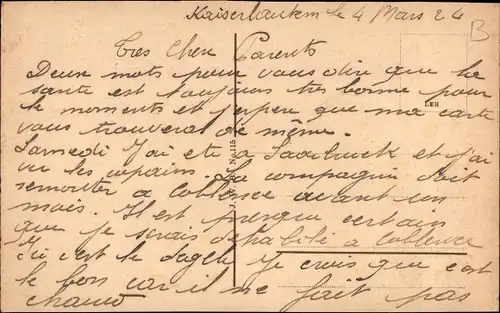 Kaiserlautern le 4 Mars 24
B
Tres Chere Parents
Deux mots pour vous dire que la
sante est toujours très bonne pour
le moments et j'espere que ma carte
vous trouverai de même.
LEH
Samedi J'ai ete a Saarbruck et j'ai
vu les copains. La compagnie doit
remonter a Coblence avant un
mois. Il est presque certain
que je serais dehabilé a Coblence
Ici c'est le Je crois que c'est
le bon car il ne fait pas
chaud
No. 115